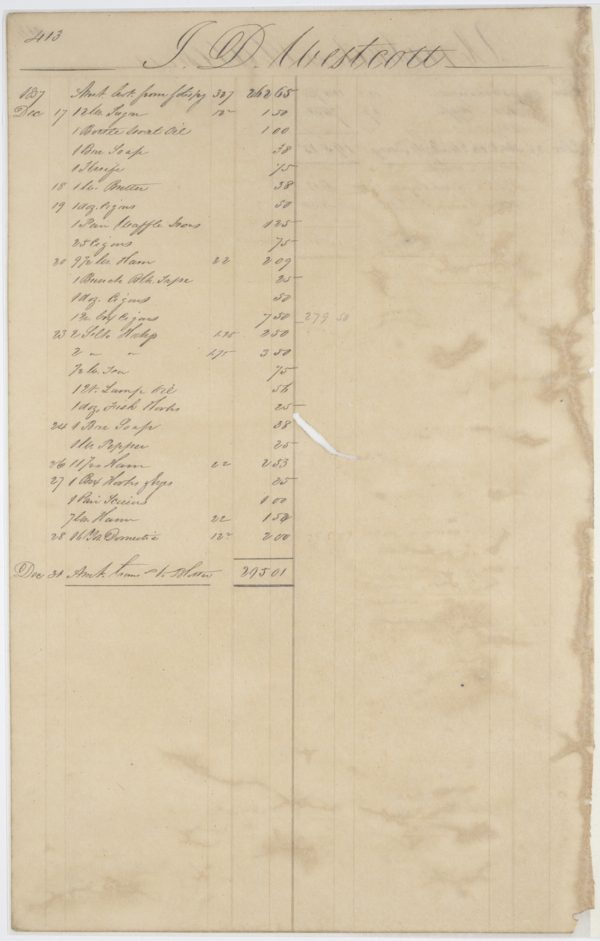 413
J D Westcott
1837 Amt brt. from folio pg 387 262 65
Dec 17 12 lbs Sugar 12½ 1 50
1 Bottle Swt Oil 1 00
1 Bar Soap 38
1 Knife 75
18 1 lb. Butter 38
19 1 doz. Cigars 50
1 Pair Waffle Irons 1 25
25 Cigars 75
20 9½ lbs Ham 22 2 09
1 Bunch Blk Tape 25
1 doz. Cigars 50
1 Box Cigars 7 50 279 50
23 2 Hdkfs 125 2 50
2 " " 175 3 50
½ lb. Tea 75
1 Qt. Lamp Oil 56
1 doz Fish Hooks 25
24 1 Bar Soap 38
1 lb Pepper 25
26 11½ lbs Ham 22 2 53
27 1 Box Hooks & Eyes 25
1 Pair Scissors 1 00
7 lbs Ham 22 1 54
28 16 Yds Domestic 12½ 2 00
Dec 31 Amt. trans to 295 01